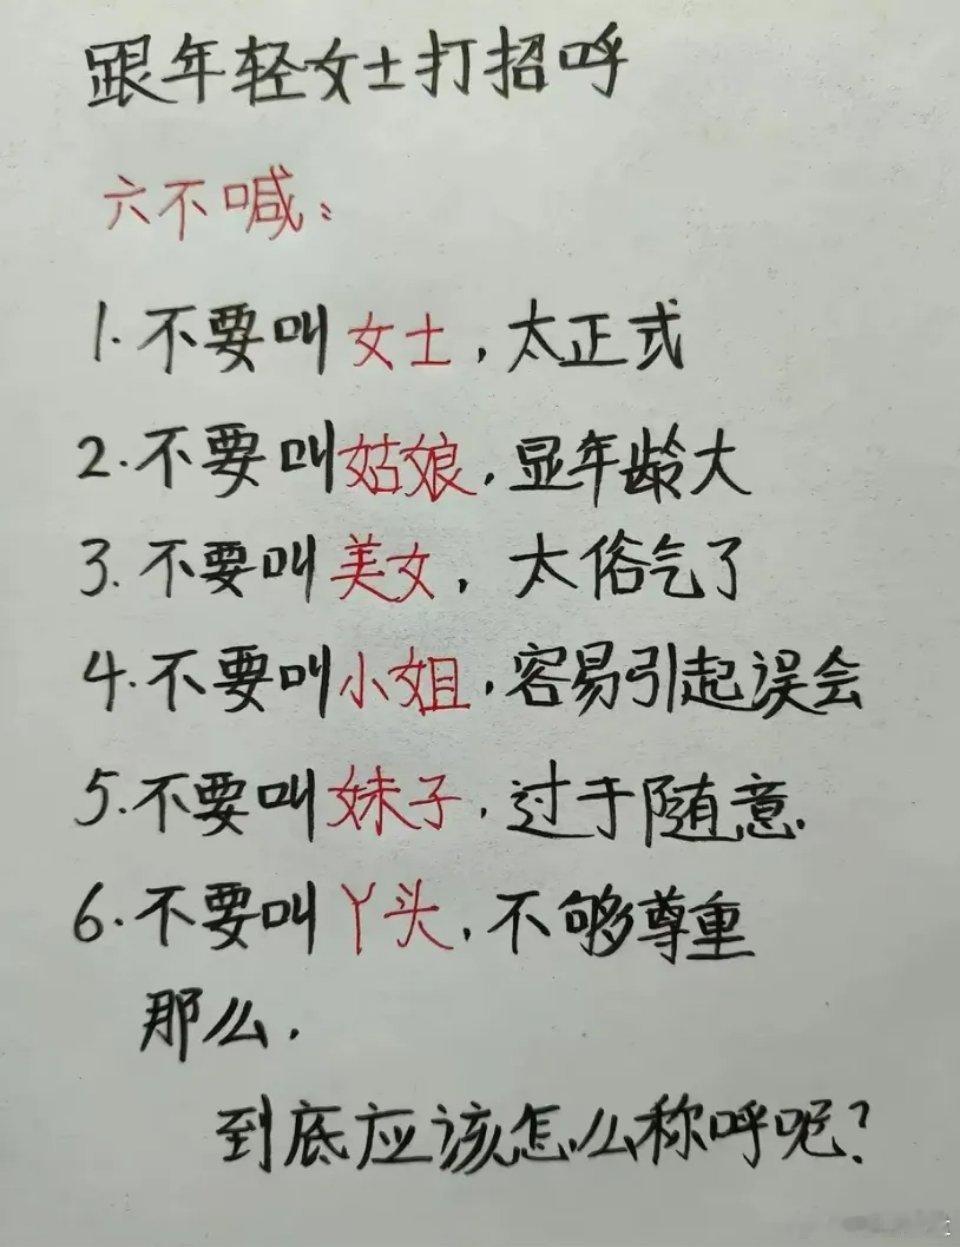 跟年轻女士打招呼
六不喊：
1.不要叫女士，太正式
2.不要叫姑娘，显年龄大
3.不要叫美女，太俗气了
4.不要叫小姐，容易引起误会
5.不要叫妹子，过于随意.
6.不要叫丫头，不够尊重
那么，
到底应该怎么称呼呢？